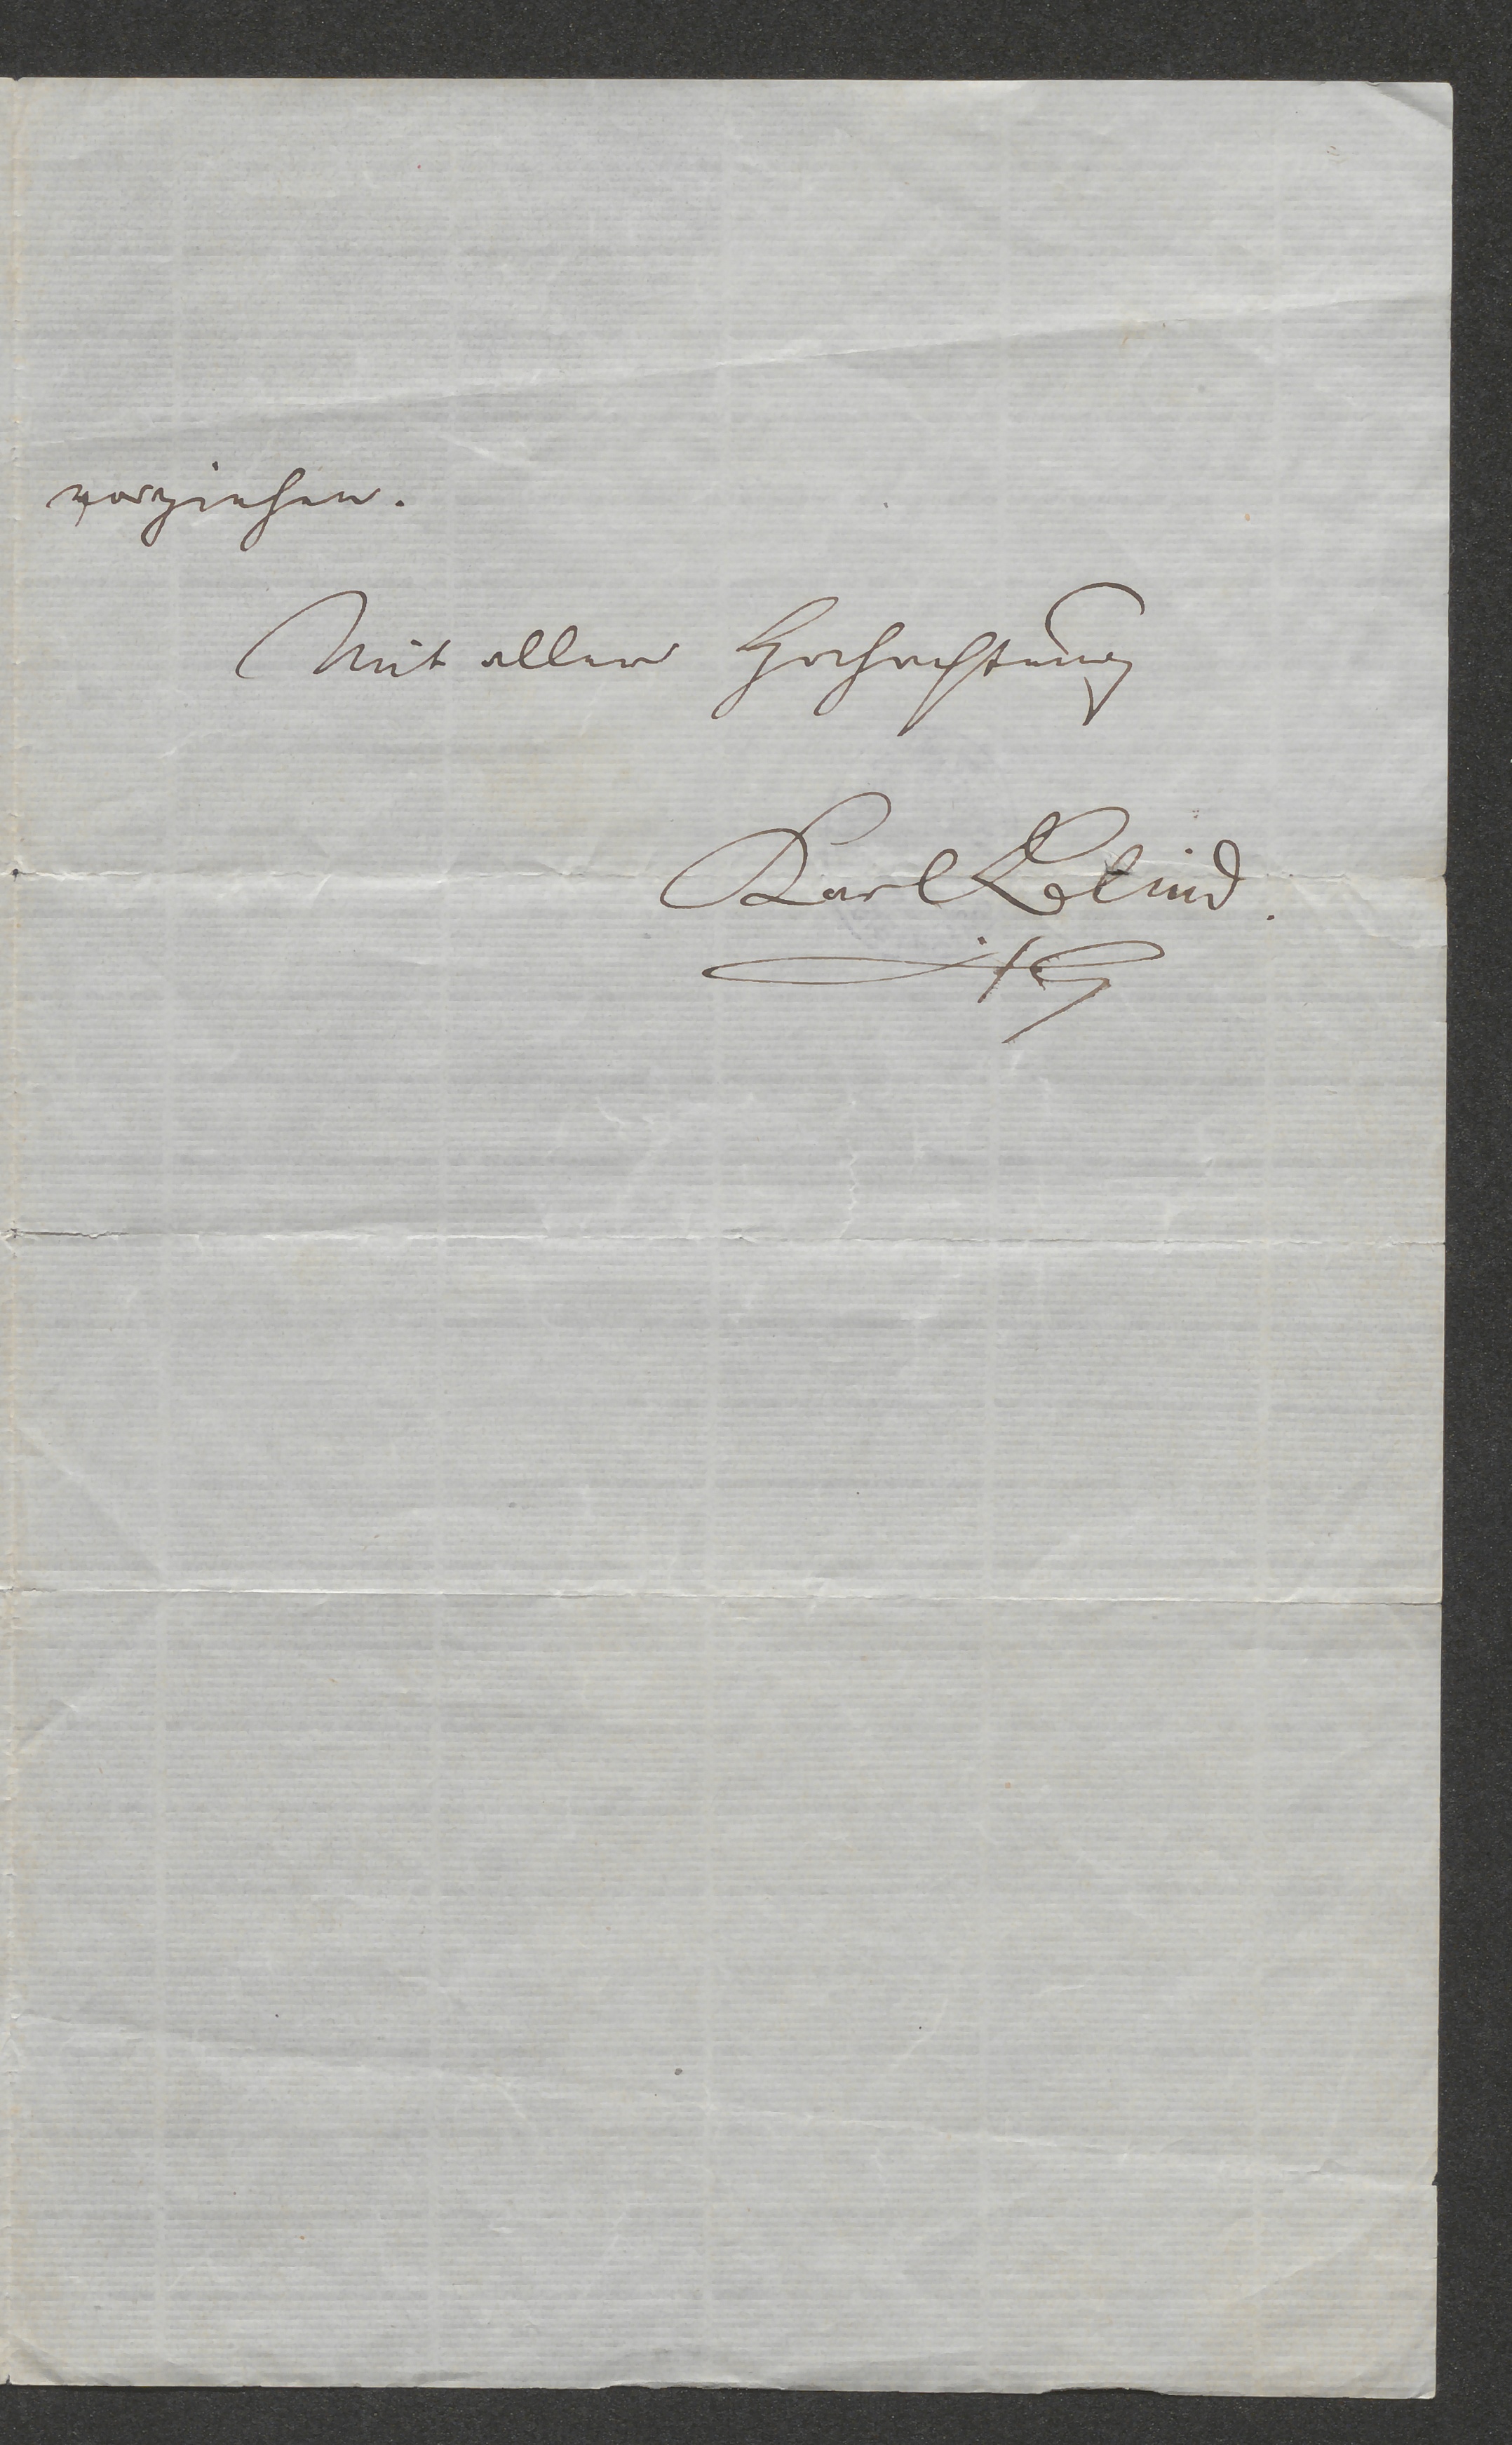 vorziehen.
Mit aller Hochachtung
Karl Blind.